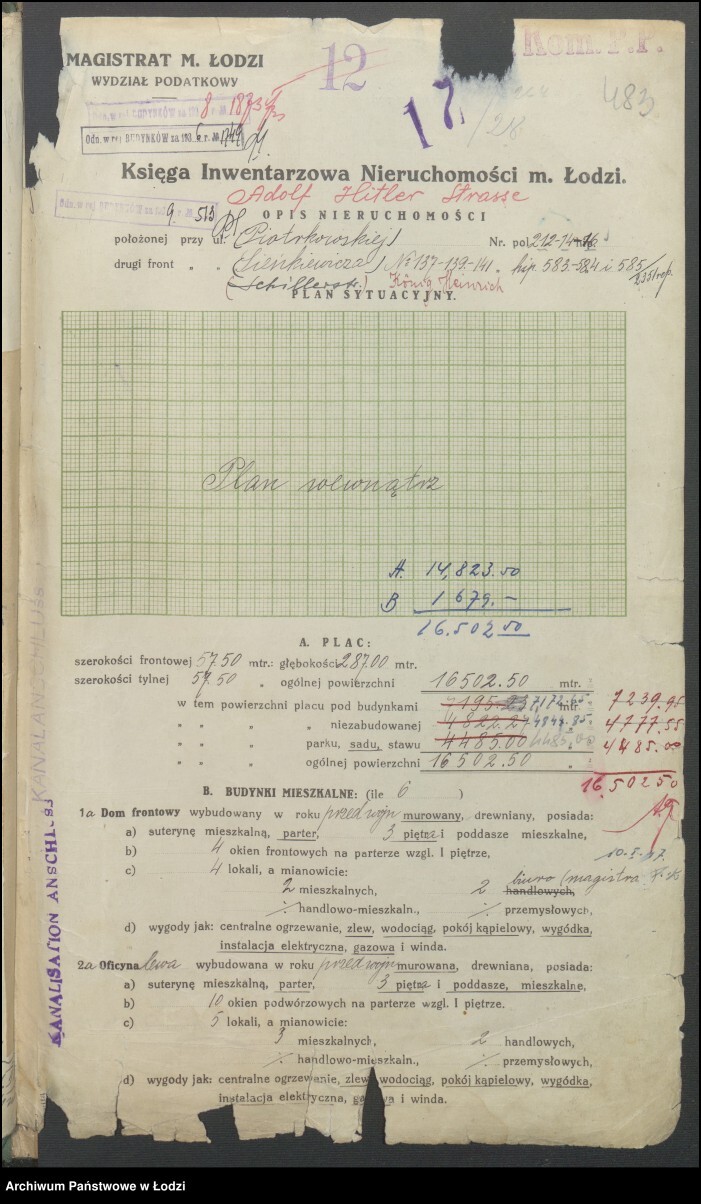 MAGISTRAT M. ŁODZI
WYDZIAŁ PODATKOWY
12
Kom. P.P.
483
17
/218
Odn. w rej BUDYNKÓW za 193 6 r. №
Księga Inwentarzowa Nieruchomości m. Łodzi.
Adolf Hitler Strasse
9. 513
OPIS NIERUCHOMOŚCI
położonej przy ul. (Piotrkowskiej) Nr. pol. 212-14-16
drugi front " " (Sienkiewicza) № 137-139-141 " hip. 583-584 i 585
(Schillerstr.) König Heinrich
PLAN SYTUACYJNY.
Plan wewnątrz
A. 14,823.50
B 1 679.-
16.502 50
A. PLAC:
szerokości frontowej 57.50 mtr.: głębokości 287.00 mtr.
szerokości tylnej 57.50 " ogólnej powierzchni 16502.50 mtr.
w tem powierzchni placu pod budynkami mtr. 7239.95
" " " " niezabudowanej 4822.27 " 4777.55
" " " parku, sadu, stawu 4485.00 4485.00 " 4485.00
" " " ogólnej powierzchni 16502.50 "
16.502 50
B. BUDYNKI MIESZKALNE: (ile 6 )
1a Dom frontowy wybudowany w roku przed wojn murowany, drewniany, posiada:
a) suterynę mieszkalną, parter, 3 piętra i poddasze mieszkalne,
b) 4 okien frontowych na parterze wzgl. I piętrze,
c) 4 lokali, a mianowicie:
biuro (magistra
2 mieszkalnych, 2 handlowych,
·/· handlowo-mieszkaln., ·/· przemysłowych,
d) wygody jak: centralne ogrzewanie, zlew, wodociąg, pokój kąpielowy, wygódka,
instalacja elektryczna, gazowa i winda.
2a Oficyna lewa wybudowana w roku przed wojn murowana, drewniana, posiada:
a) suterynę mieszkalną, parter, 3 piętra i poddasze, mieszkalne,
b) 10 okien podwórzowych na parterze wzgl. I piętrze.
c) 5 lokali, a mianowicie:
3 mieszkalnych, 2 handlowych,
·/· handlowo-mieszkaln., ·/· przemysłowych,
d) wygody jak: centralne ogrzewanie, zlew wodociąg, pokój kąpielowy, wygódka,
instalacja elektryczna, gazowa i winda.
KANALISATION ANSCHLUSS
KANALANSCHLUSS
Archiwum Państwowe w Łodzi